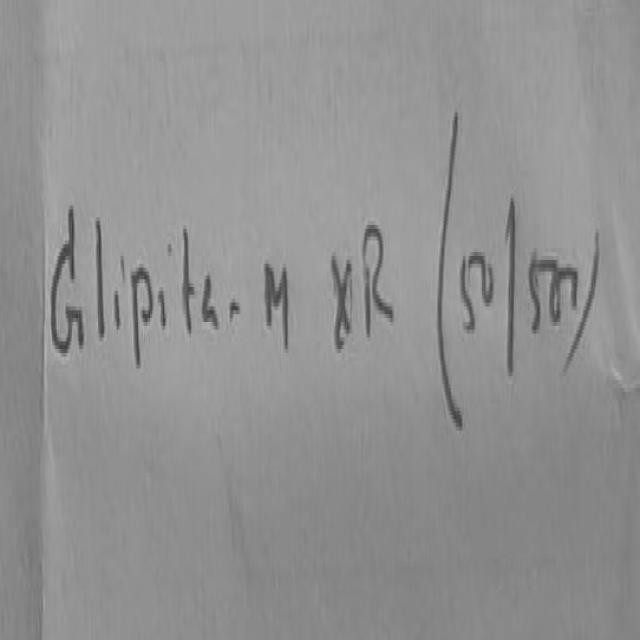 Glipita-M XR (50/500)